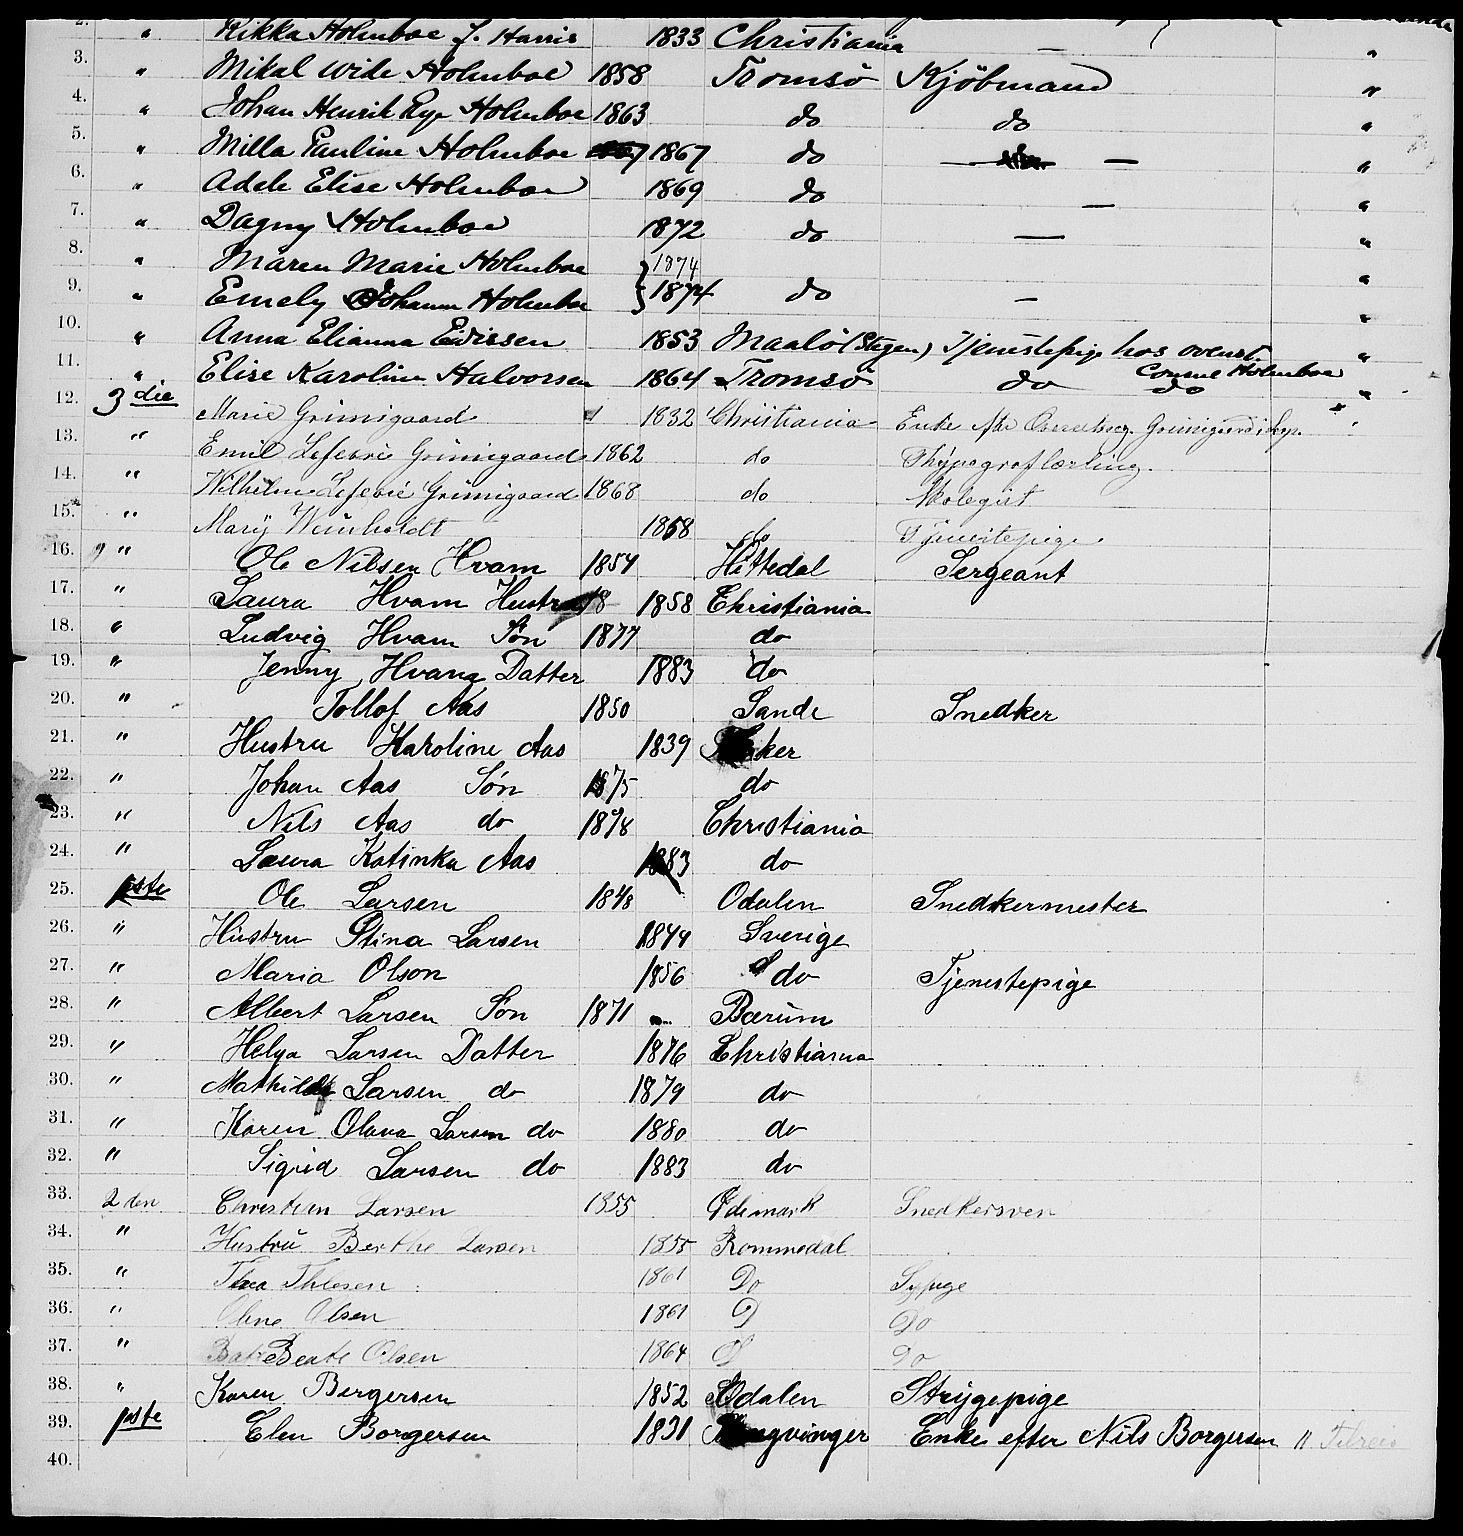 2. " Rikka Holmboe f. Harris 1833 Christiania —
3. " Mikal Wide Holmboe 1858 Tromsö Kjöbmand "
4. " Johan Henrik Rye Holmboe 1863 do do "
5. " Milla Pauline Holmboe 1867 do — — "
6. " Adele Elise Holmboe 1869 do — "
7. " Dagny Holmboe 1872 do — "
8. " Maren Marie Holmboe 1874 "
9. " Emely Johanne Holmboe 1874 do — "
10. " Anna Elianna Edissen 1853 Maalö (Stegen) Tjenestepige hos ovenst. "
Consul Holmboe
11. " Elise Karoline Halvorsen 1864 Tromsö do do "
12. 3 die Marie Grimsgaard 1832 Christiania Enke
13. " Emil Lefevre Grimsgaard 1862 do Thypograflærling.
14. " Wilhelm Lefevre Grimsgaard 1868 do Skolegut
15. " Mary Weinholdt 1858 do Tjenestepige.
16. " Ole Nilsen Hvam 1854 Hittedal Sergeant
17. " Laura Hvam Hustru 18 1858 Christiania
18. " Ludvig Hvam Søn 1877 do
19. " Jenny Hvam Datter 1883 do
20. " Tollof Aas 1850 Sande Snedker
21. " Hustru Karoline Aas 1839 Aker
22. " Johan Aas Søn 1875 do
23. " Nils Aas do 1878 Christiania
24. " Laura Katinka Aas 1883 do
25. 1ste Ole Larsen 1848 Odalen Snedkermester
26. " Hustru Stina Larsen 1844 Sverige
27. " Maria Olson 1856 do Tjenestepige
28. " Albert Larsen Søn 1871 Bærum
29. " Helga Larsen Datter 1876 Christiania
30. " Mathilde Larsen do 1879 do
31. " Karen Olava Larsen do 1880 do
32. " Sigrid Larsen do 1883 do
33. 2den Christian Larsen 1855 Ødemark Snedkersven
34. " Hustru Berthe Larsen 1855 Rommedal
35. " Thea 1861 Do Sypige
36. " Oline Olsen 1861 D Do
37. " Beate Olsen 1864 D Do
38. " Karen Bergersen 1852 Odalen Strygepige
39. 1ste Elen Borgersen 1831 Kongvinger Enke efter Nils Borgersen "
40.